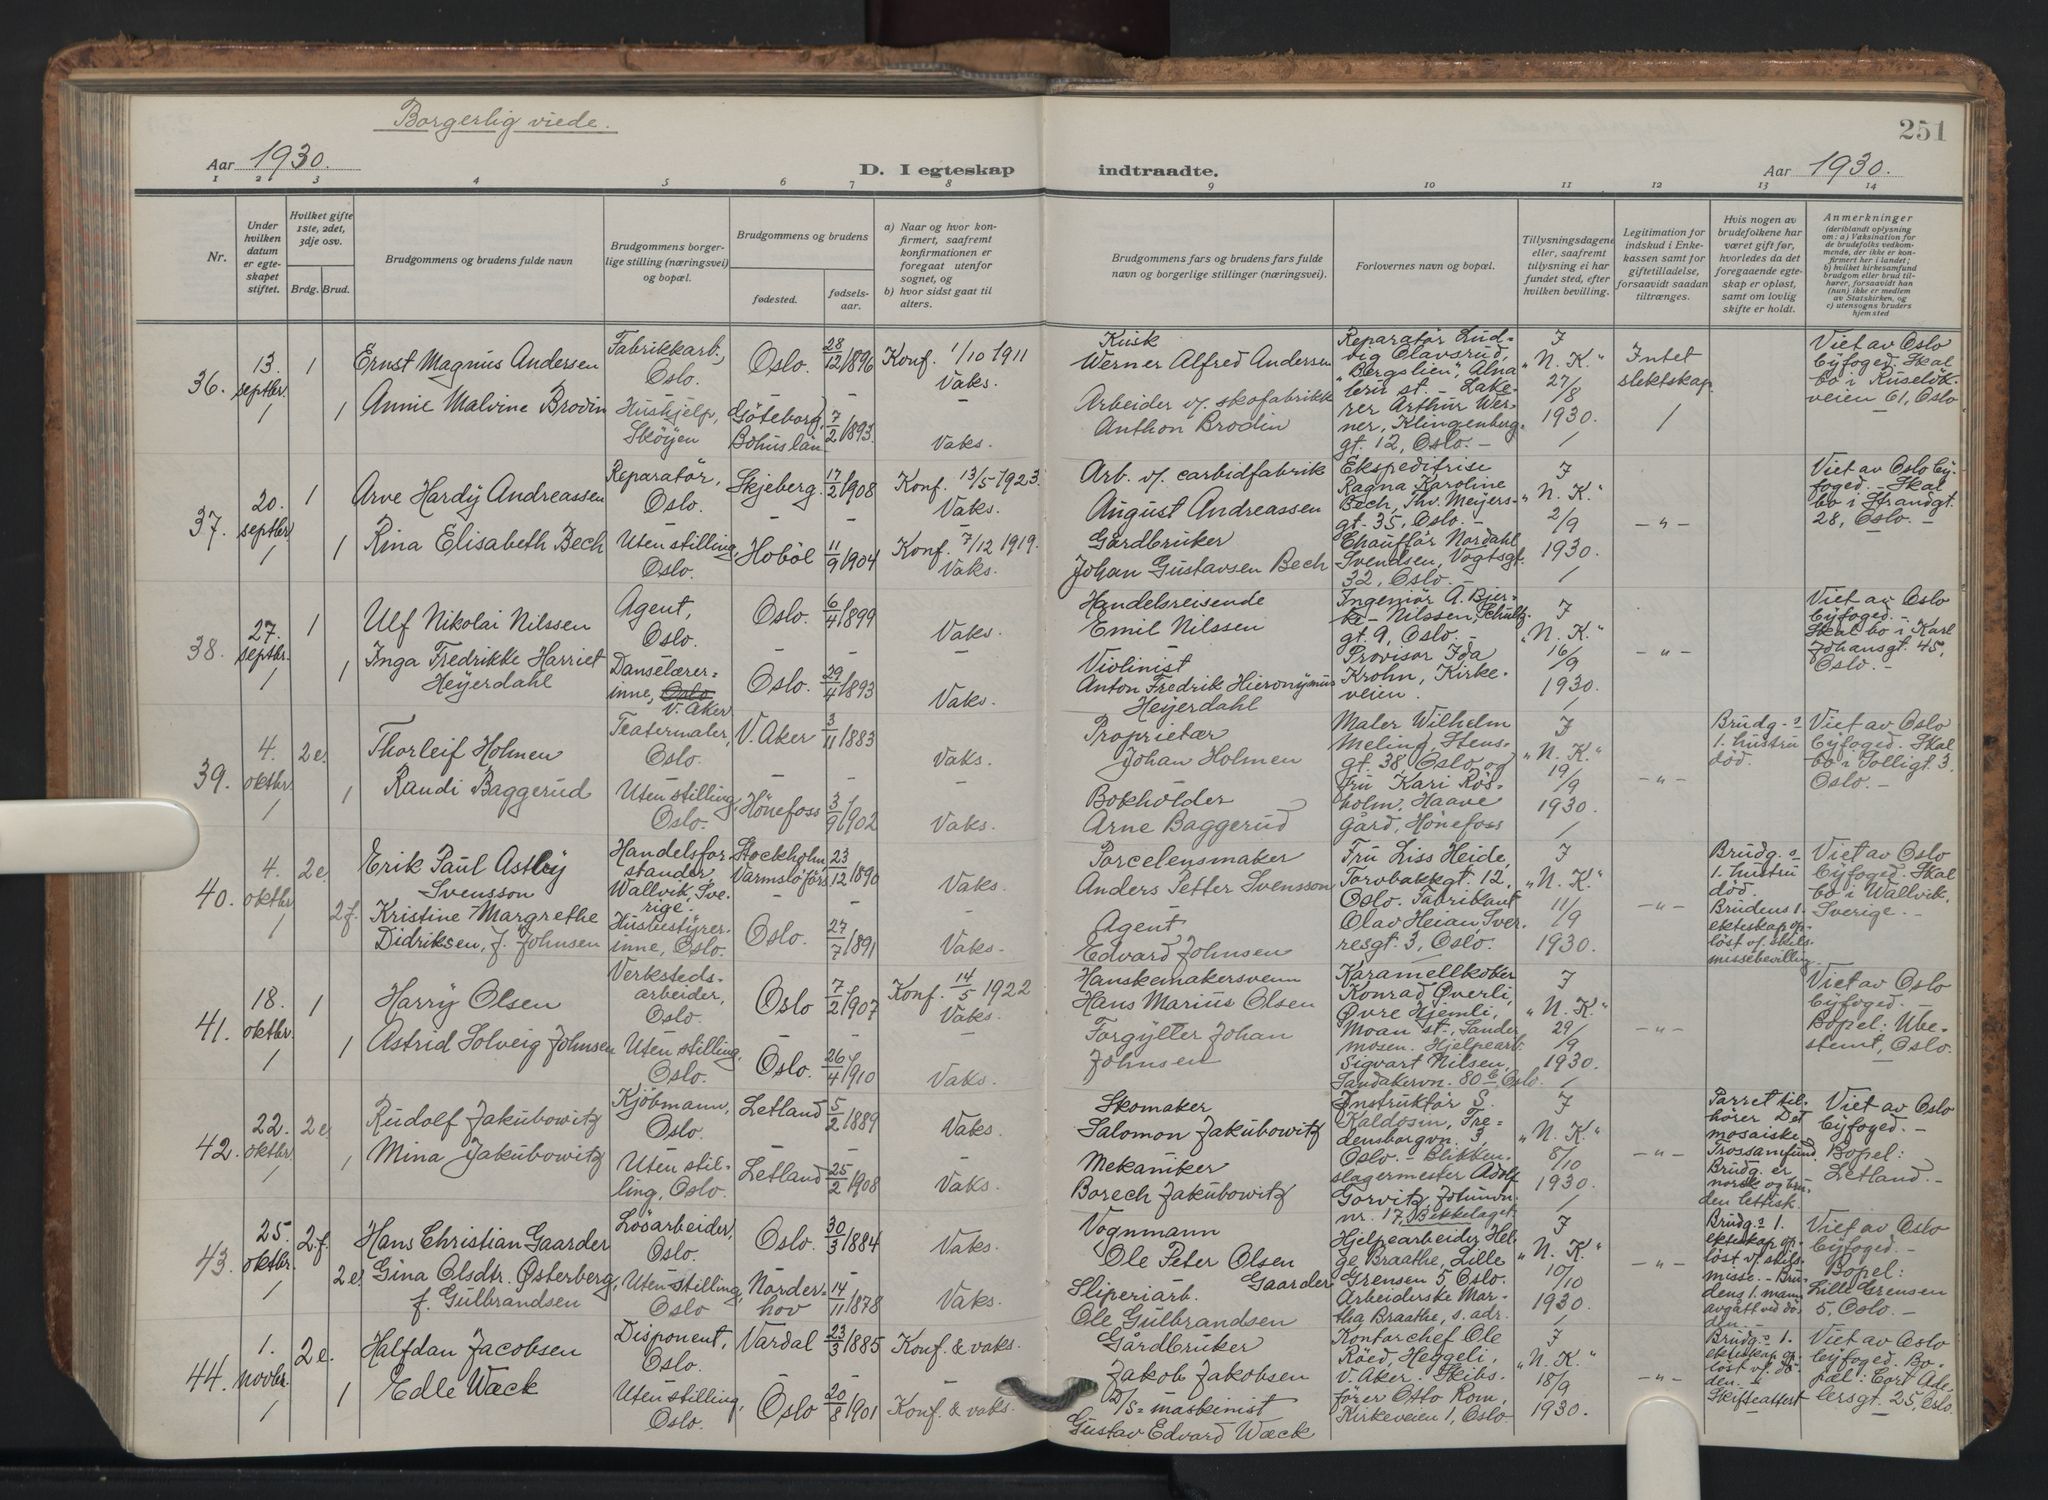 Borgerlig viede.
251
Aar 1930.
D. I egteskap
indtraadte.
Aar 1930.
1 2 3 4 5 6 7 8 9 10 11 12 13 14
Nr.
Under hvilken datum er egteskapet stiftet.
Hvilket gifte 1ste, 2det, 3dje osv.
Brdg. Brud.
Brudgommens og brudens fulde navn
Brudgommens borgerlige stilling (næringsvei) og bopæl.
Brudgommens og brudens
fødested.
fødselsaar.
a) Naar og hvor konfirmert, saafremt konfirmationen er foregaat utenfor sognet, og
b) hvor sidst gaat til alters.
Brudgommens fars og brudens fars fulde navn og borgerlige stillinger (næringsvei).
Forlovernes navn og bopæl.
Tillysningsdagene eller, saafremt tillysning ei har fundet sted, efter hvilken bevilling.
Legitimation for indskud i Enkekassen samt for giftetilladelse, forsaavidt saadan tiltrænges.
Hvis nogen av brudefolkene har været gift før, hvorledes da det foregaaende egteskap er opløst, samt om lovlig skifte er holdt.
Anmerkninger
(deriblandt oplysning om: a) Vaksination for de brudefolks vedkommende, der ikke er konfirmert her i landet;
b) hvilket kirkesamfund brudgom eller brud tilhører, forsaavidt han (hun) ikke er medlem av Statskirken, og
c) utensogns bruders hjemsted
36.
13. septbr.
1
Ernst Magnus Andersen
Fabrikkarb., Oslo.
Oslo.
28/12 1896
Konf. 1/10 1911
Vaks.
1
Annie Malvine Brodin
Hushjelp, Skøyen
Göteborg, Bohuslän
7/2 1893.
Vaks.
Kusk
Werner Alfred Andersen
Arbeider v. skofabrikk
Anthon Brodin
Reparatör Lud-
vig Olavsrud,
"Bergslien", Alna
bru st. - Lake-
rer Arthur Wer-
ner, Klingenberg-
gt. 12, Oslo. -
I
"N. K."
27/8
1930.
Intet
slektskap.
Viet av Oslo
byfoged. Skal
bo i Ruselök-
veien 61, Oslo
37.
20. septbr.
1
Arve Hardy Andreassen
Reparatör, Oslo.
Skjeberg.
17/2 1908
Konf. 13/5 1923.
Vaks.
1
Rina Elisabeth Bech
Uten stilling, Oslo.
Hoböl
11/9 1904
Konf. 7/12 1919.
Vaks.
Arb. v. carbidfabrik
August Andreassen
Gårdbruker
Johan Gustavsen Bech
Ekspeditrise
Ragna Karoline
Bech, Thv. Meyers-
gt. 35, Oslo. -
Chaufför Nordahl
Svendsen, Vogtsgt.
32, Oslo. -
I
"N. K."
2/9
1930.
- " -
Viet av Oslo by-
foged. - Skal
bo i Strandgt.
28, Oslo. -
38.
27. septbr.
1
Ulf Nikolai Nilssen
Agent, Oslo.
Oslo.
6/4 1899
Vaks.
1
Inga Fredrikke Harriet
Heyerdahl
Danselærer-
inne, Oslo
V. Aker
Oslo.
29/4 1893
Vaks.
Handelsreisende
Emil Nilssen
Violinist
Anton Fredrik Hieronymus
Heyerdahl
Ingeniör A. Bjer-
ke-Nilssen, Schultz-
gt. 9, Oslo. -
Provisor Ida
Krohn, Kirke-
veien.
I
"N. K."
16/9
1930.
- " -
Viet av Oslo
byfoged. -
Skal bo i Karl
Johansgt. 45,
Oslo. -
39.
4. oktbr.
2e.
Thorleif Holmen
Teatermaler, Oslo.
V. Aker
3/11 1883
Vaks.
1
Randi Baggerud
Uten stilling, Oslo.
Hönefoss
3/9 1902
Vaks.
Proprietær
Johan Holmen
Bokholder
Arne Baggerud
Maler Wilhelm
Meling, Stens-
gt. 38 Oslo, og
fru Kari Rös-
holm, Haave
gård, Hönefoss
I
"N. K."
19/9
1930.
- " -
Brudg.s
1. hustru
död.
Viet av Oslo
byfoged. Skal
bo i Tolligt. 3.
Oslo. -
40.
4. oktbr.
2e.
Erik Paul Astley
Svensson
Handelsfor-
stander,
Wallvik, Sve-
rige.
Stockholm
23/12 1890
Vaks.
2f.
Kristine Margrethe
Didriksen, f. Johnsen
Husbestyrer-
inne, Oslo.
Oslo.
27/7 1891
Vaks.
Porcelensmaker
Anders Petter Svensson
Agent
Edvard Johnsen
Fru Liss Heide,
Torvbakkgt. 12,
Oslo. Fabrikant
Olav Heian, Sver-
resgt. 3, Oslo.
I
"N. K."
11/9
1930.
- " -
Brudg.s
1. hustru
död.
Brudens 1.
ekteskap op-
löst v. skils-
missebevilling
Viet av Oslo
byfoged. Skal
bo i Wallvik,
Sverige. -
41.
18. oktbr.
1
Harry Olsen
Verksteds-
arbeider,
Oslo.
Oslo
7/2 1907
Konf. 14/5 1922
Vaks.
1
Astrid Solveig Johnsen
Uten stilling, Oslo.
Oslo.
26/4 1910
Vaks.
Hanskemakersvenn
Hans Marius Olsen
Forgylter Johan
Johnsen
Karamellkoker
Konrad Øverli,
Øvre Hjemli,
Moan st., Sander-
mosen. Hjelpearb.
Sigvart Nilsen,
Sandakervn. 80 b, Oslo.
I
"N. K."
29/9
1930.
- " -
Viet av Oslo
byfoged. -
Bopel: Ube-
stemt, Oslo.
42.
22. oktbr.
2e
Rudolf Jakubowitz
Kjöbmann, Oslo.
Letland
5/2 1889
Vaks.
1
Mina Jakubowitz
Uten stil-
ling, Oslo.
Letland
25/2 1908
Vaks.
Skomaker
Salomon Jakubowitz
Mekaniker
Borech Jakubowitz
Instruktör S.
Kaldosin, Fre-
densborgvn. 3,
Oslo. - Blikken-
slagermester Adolf
Gorvitz, Johunvn.
nr. 17, Bekkelaget
I
"N. K."
8/10
1930.
- " -
Parret til-
hörer Det
mosaiske
Trossamfund.
Brudg. er
norsk og bru-
den lettisk.
Viet av Oslo
byfoged. -
Bopel:
Letland. -
43.
25. oktbr.
2.f.
Hans Christian Gaarder
Lösarbeider, Oslo.
Oslo.
30/3 1884
Vaks.
2e.
Gina Olsdtr. Østerberg,
f. Gulbrandsen
Uten stilling, Oslo
Norder-
hov
14/11 1878
Vaks.
Vognmann
Ole Peter Olsen
Gaarder
Sliperiarb.
Ole Gulbrandsen
Hjelpearbeider Hel-
ge Braathe, Lille
Grensen 5, Oslo.
Arbeiderske Mar-
tha Braathe, s. adr.
I
"N. K."
10/10
1930.
- " -
Brudg.s 1.
ekteskap op-
löst v. skils-
misse. - Bru-
dens 1. mann
avgått ved dö-
den. -
Viet av Oslo
byfoged. -
Bopel:
Lille Grensen
5, Oslo. -
44.
1. novbr.
2e.
Halfdan Jacobsen
Disponent, Oslo.
Vardal
23/3 1885
Konf. & vaks.
1
Edle Wæck
Uten stilling, Oslo.
Oslo
20/8 1901
Konf. & vaks.
Gårdbruker
Jakob Jakobsen
D/S=maskinist
Gustav Edvard Wæck
Kontorchef Ole
Röed, Heggeli,
V. Aker. Skibs-
förer Otto Rom,
Kirkeveien 1, Oslo
I
"N. K."
18/9
1930.
- " -
Brudg.s 1.
ekteskap op-
löst v. dö-
den. -
Skifteattest
Viet av Oslo
byfoged. Bo-
pæl: Cort Ade-
lersgt. 25, Oslo.